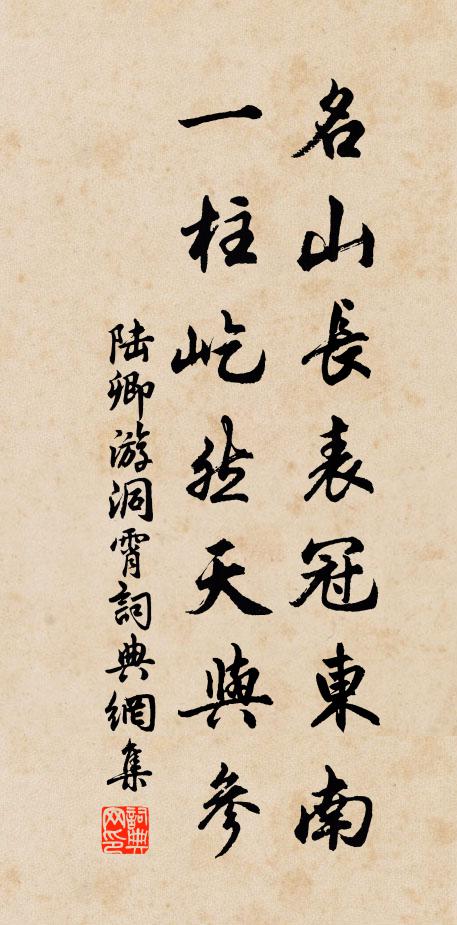 名山長表冠東南
一柱屹然天與參
陸卿游洞霄詞典網集
詞典网印